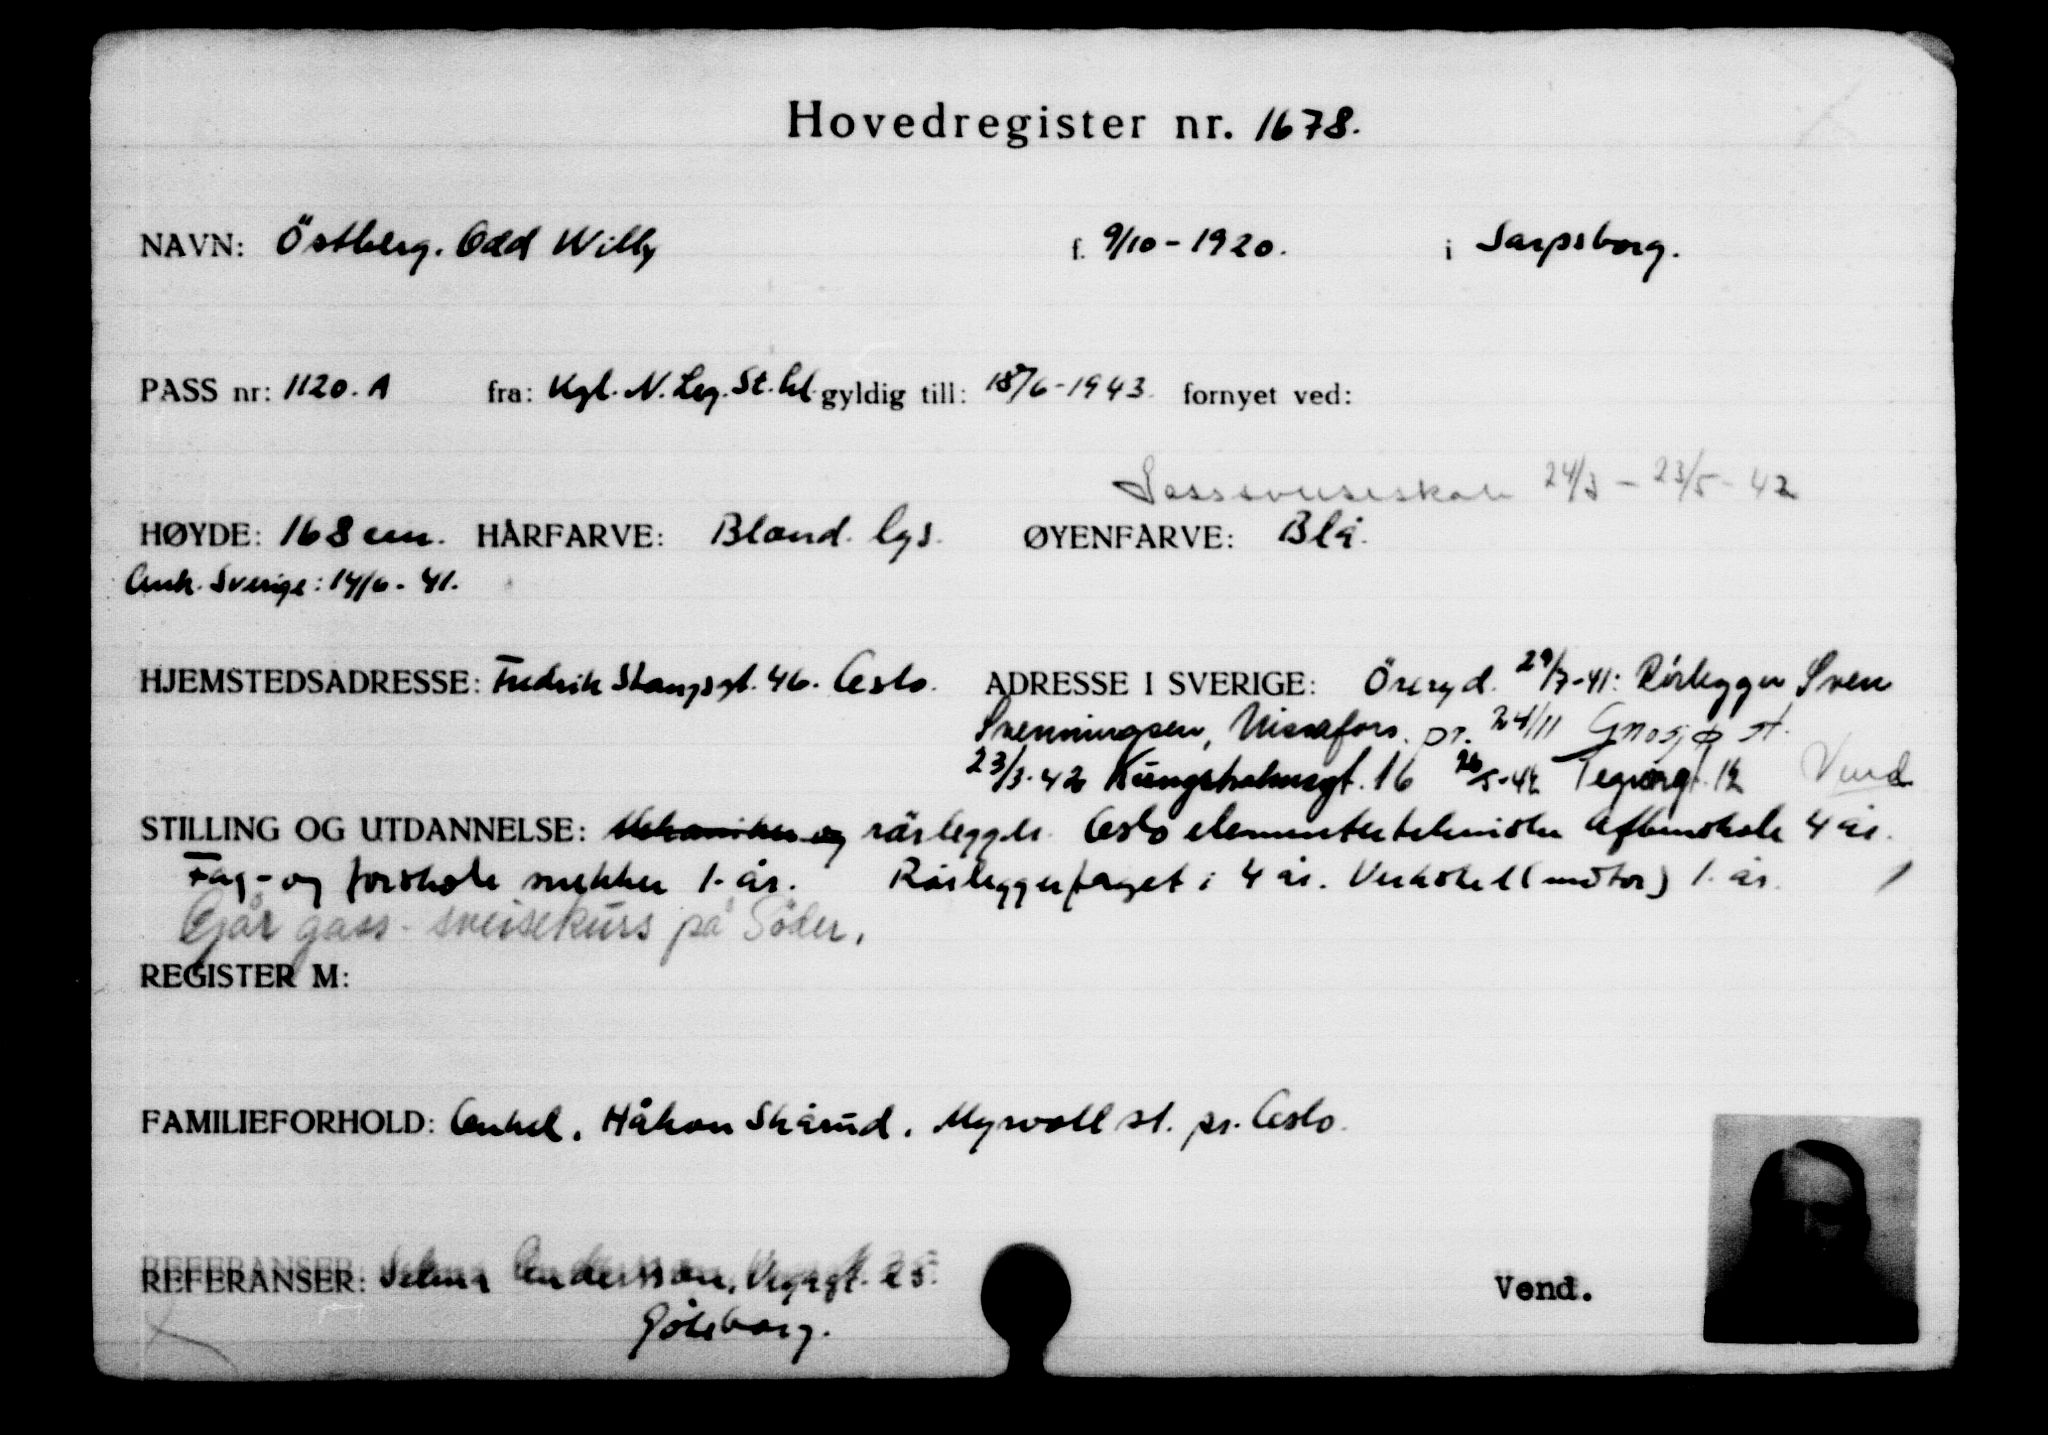 Hovedregister nr. 1678.
NAVN: Östberg. Odd Willy f. 9/10-1920. i Sarpsborg.
PASS nr: 1120. A fra: Kgl. N. Leg. St.hl. gyldig till: 18/6-1943. fornyet ved:
24/3 - 23/5 - 42
HØYDE: 168 cm. HÅRFARVE: Blond. lys. ØYENFARVE: Blå.
Ank. Sverige: 14/6 - 41.
HJEMSTEDSADRESSE: Fredrik Stangsgt. 46. Oslo. ADRESSE I SVERIGE: Öreryd. 29/7-41: Rörlegger Sven
Svenningsen, Nissafors. pr. 24/11 Gnosjø st.
23/3-42 Kungsholmsgt. 16 26/5-42 Tegnérgt. 12 Vend
STILLING OG UTDANNELSE: Mekaniker og rörlegger. Oslo elementærtekniske Aftenskole 4 år.
Fag- og forskole snekker 1. år. Rörleggerfaget i 4 år. Verksted (motor) 1. år.
Går gass-sveisekurs på Söder.
REGISTER M:
FAMILIEFORHOLD: Onkel. Håkon Skårud. Myrvoll st. pr. Oslo.
REFERANSER: Selma Andersson, Vegagt. 25.
Göteborg.
Vend.